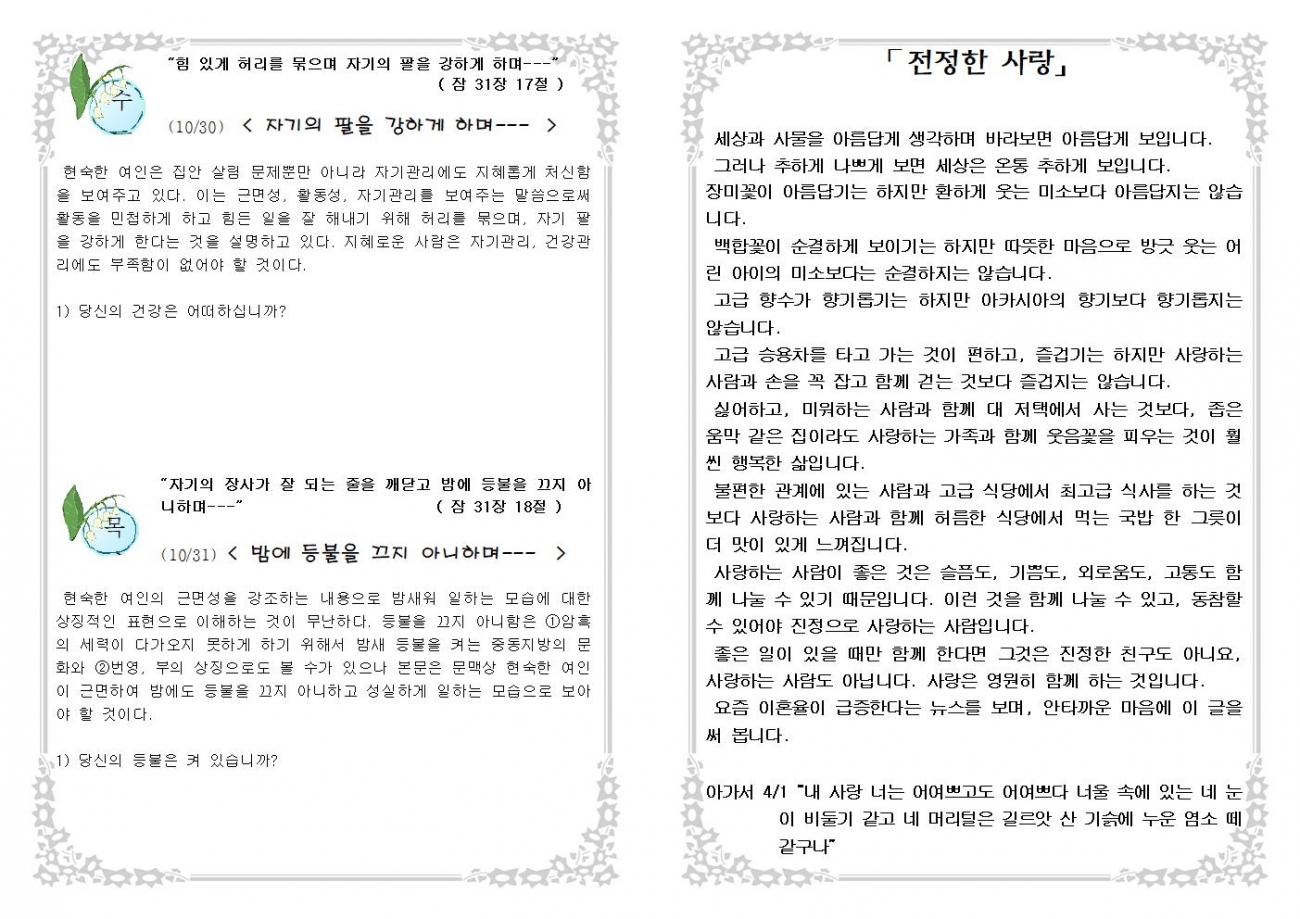 “힘 있게 허리를 묶으며 자기의 팔을 강하게 하며---”
( 잠 31장 17절 )
수
(10/30) < 자기의 팔을 강하게 하며--- >
현숙한 여인은 집안 살림 문제뿐만 아니라 자기관리에도 지혜롭게 처신함
을 보여주고 있다. 이는 근면성, 활동성, 자기관리를 보여주는 말씀으로써
활동을 민첩하게 하고 힘든 일을 잘 해내기 위해 허리를 묶으며, 자기 팔
을 강하게 한다는 것을 설명하고 있다. 지혜로운 사람은 자기관리, 건강관
리에도 부족함이 없어야 할 것이다.
1) 당신의 건강은 어떠하십니까?
“자기의 장사가 잘 되는 줄을 깨닫고 밤에 등불을 끄지 아
니하며---” ( 잠 31장 18절 )
목
(10/31) < 밤에 등불을 끄지 아니하며--- >
현숙한 여인의 근면성을 강조하는 내용으로 밤새워 일하는 모습에 대한
상징적인 표현으로 이해하는 것이 무난하다. 등불을 끄지 아니함은 ①암흑
의 세력이 다가오지 못하게 하기 위해서 밤새 등불을 켜는 중동지방의 문
화와 ②번영, 부의 상징으로도 볼 수가 있으나 본문은 문맥상 현숙한 여인
이 근면하여 밤에도 등불을 끄지 아니하고 성실하게 일하는 모습으로 보아
야 할 것이다.
1) 당신의 등불은 켜 있습니까?
「전정한 사랑」
세상과 사물을 아름답게 생각하며 바라보면 아름답게 보입니다.
그러나 추하게 나쁘게 보면 세상은 온통 추하게 보입니다.
장미꽃이 아름답기는 하지만 환하게 웃는 미소보다 아름답지는 않습
니다.
백합꽃이 순결하게 보이기는 하지만 따뜻한 마음으로 방긋 웃는 어
린 아이의 미소보다는 순결하지는 않습니다.
고급 향수가 향기롭기는 하지만 아카시아의 향기보다 향기롭지는
않습니다.
고급 승용차를 타고 가는 것이 편하고, 즐겁기는 하지만 사랑하는
사람과 손을 꼭 잡고 함께 걷는 것보다 즐겁지는 않습니다.
싫어하고, 미워하는 사람과 함께 대 저택에서 사는 것보다, 좁은
움막 같은 집이라도 사랑하는 가족과 함께 웃음꽃을 피우는 것이 훨
씬 행복한 삶입니다.
불편한 관계에 있는 사람과 고급 식당에서 최고급 식사를 하는 것
보다 사랑하는 사람과 함께 허름한 식당에서 먹는 국밥 한 그릇이
더 맛이 있게 느껴집니다.
사랑하는 사람이 좋은 것은 슬픔도, 기쁨도, 외로움도, 고통도 함
께 나눌 수 있기 때문입니다. 이런 것을 함께 나눌 수 있고, 동참할
수 있어야 진정으로 사랑하는 사람입니다.
좋은 일이 있을 때만 함께 한다면 그것은 진정한 친구도 아니요,
사랑하는 사람도 아닙니다. 사랑은 영원히 함께 하는 것입니다.
요즘 이혼율이 급증한다는 뉴스를 보며, 안타까운 마음에 이 글을
써 봅니다.
아가서 4/1 “내 사랑 너는 어여쁘고도 어여쁘다 너울 속에 있는 네 눈
이 비둘기 같고 네 머리털은 길르앗 산 기슭에 누운 염소 떼
같구나”